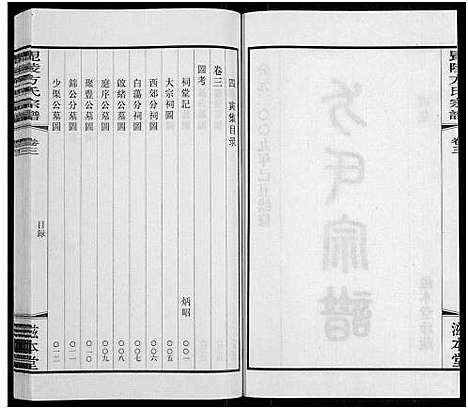 毘陵方氏宗譜
卷三
滋本堂
方氏宗譜
四 寅集目录
卷三
圖考
祠堂記 炳昭 〇〇一
大宗祠圖 〇〇二
西郊分祠圖 〇〇五
白蕩分祠圖 〇〇六
啟緒公墓圖 〇〇七
庭序公墓圖 〇〇八
聚豐公墓圖 〇一〇
錦公分墓圖 〇一一
少渠公墓圖 〇一二
毘陵方氏宗譜
卷三
目録
滋本堂